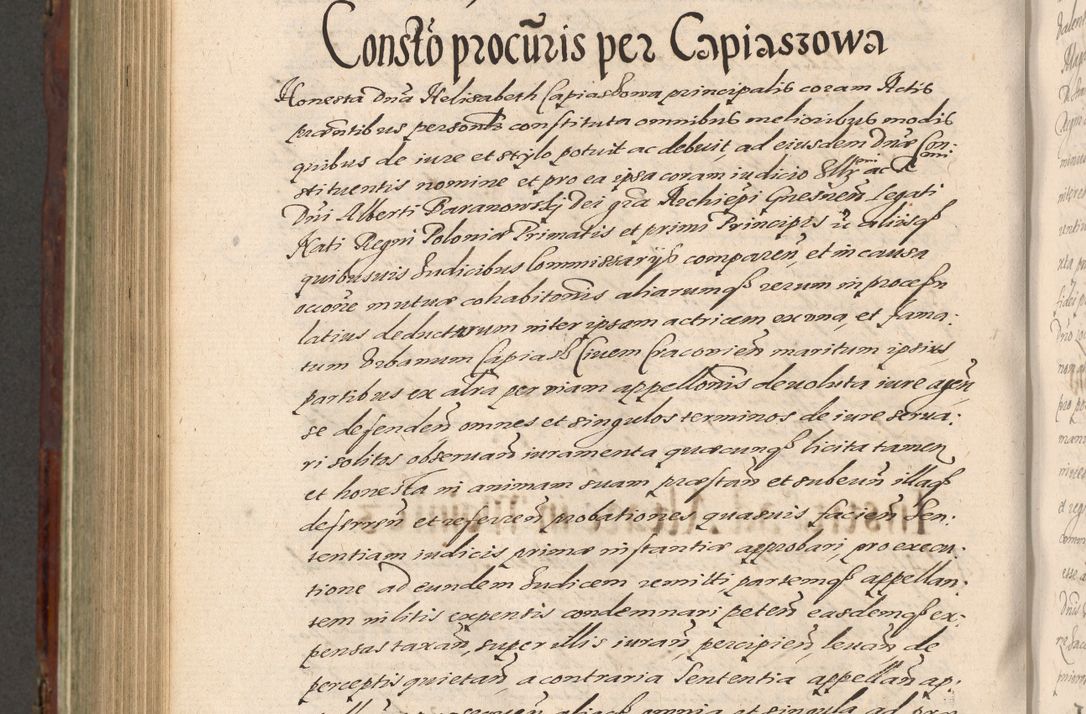 Constõ procũris per Capiaszowa
Honesta Dnã Helisabeth Capiasowa principalis coram Actis
præntibus personłr constituta omnibus melioribus modis
quibus de iure et stylo potuit ac debuit, ad eiusdem Dnæ Con:
stituentis nomine et pro ea ipsa coram iudicio Illr̃ ac Rmi
Dni Alberti Baranowskj Dei grã Archiepi Gnesneñ Legati
Nati Regni Poloniæ Primatis et primi Principis ũ aliisq
quibusuis Iudicibus Commissarys compareñ, et in causa
occõne mutuæ cohabitonis aliarumq rerum in processu
latius deductarum inter ipsam actricem ex una, et fama:
tum Vrbanum Capiasz Ciuem Cracovieñ maritum ipsius
partibus ex altra per viam appellonis deuoluta iure ageñ,
se defendeñ omnes et singulos terminos de iure serua:
ri solitos obseruañ iuramenta quæcunq licita tamen
et honesta in animam suam præstañ et subeuñ illaq
deferreñ et refereñ probationes quasuis facieñ Sen:
tentiam iudicis primæ instantiæ approbari, pro execu:
tione ad eundem Iudicem remitti partemq appellan:
tem in litis expensis condemnari peteñ easdemq ex:
pensas taxañ, super illis iurañ, percipieñ, leuañ de
perceptis quietañ, a contraria Sententia appellañ ap: